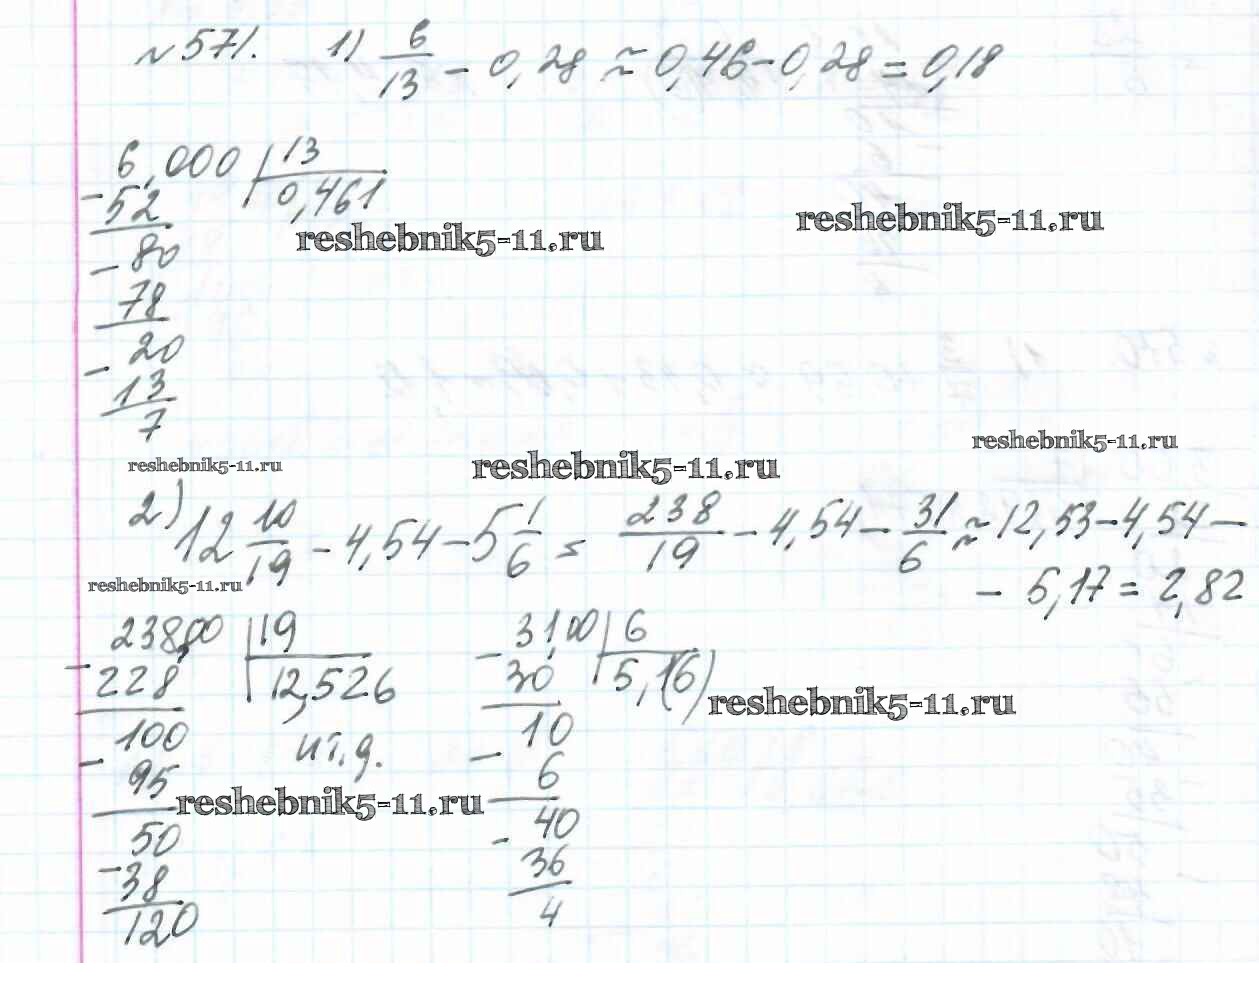 №571. 1) 6/13 - 0,28 ≈ 0,46-0,28 = 0,18
6,000 | 13
- 52 | 0,461
reshebnik5-11.ru
reshebnik5-11.ru
- 80
78
- 20
13
7
reshebnik5-11.ru
reshebnik5-11.ru
reshebnik5-11.ru
2) 12 10/19 - 4,54 - 5 1/6 = 238/19 - 4,54 - 31/6 ≈ 12,53-4,54-
- 5,17 = 2,82
reshebnik5-11.ru
238,00 | 19
- 228 | 12,526
- 100 и т.д.
95
50
- 38
120
31,00 | 6
- 30 | 5,1(6)
reshebnik5-11.ru
- 10
6
- 40
36
4
reshebnik5-11.ru